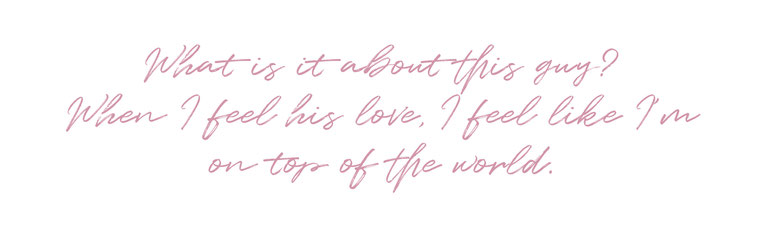 What is it about this guy?
When I feel his love, I feel like I'm
on top of the world.